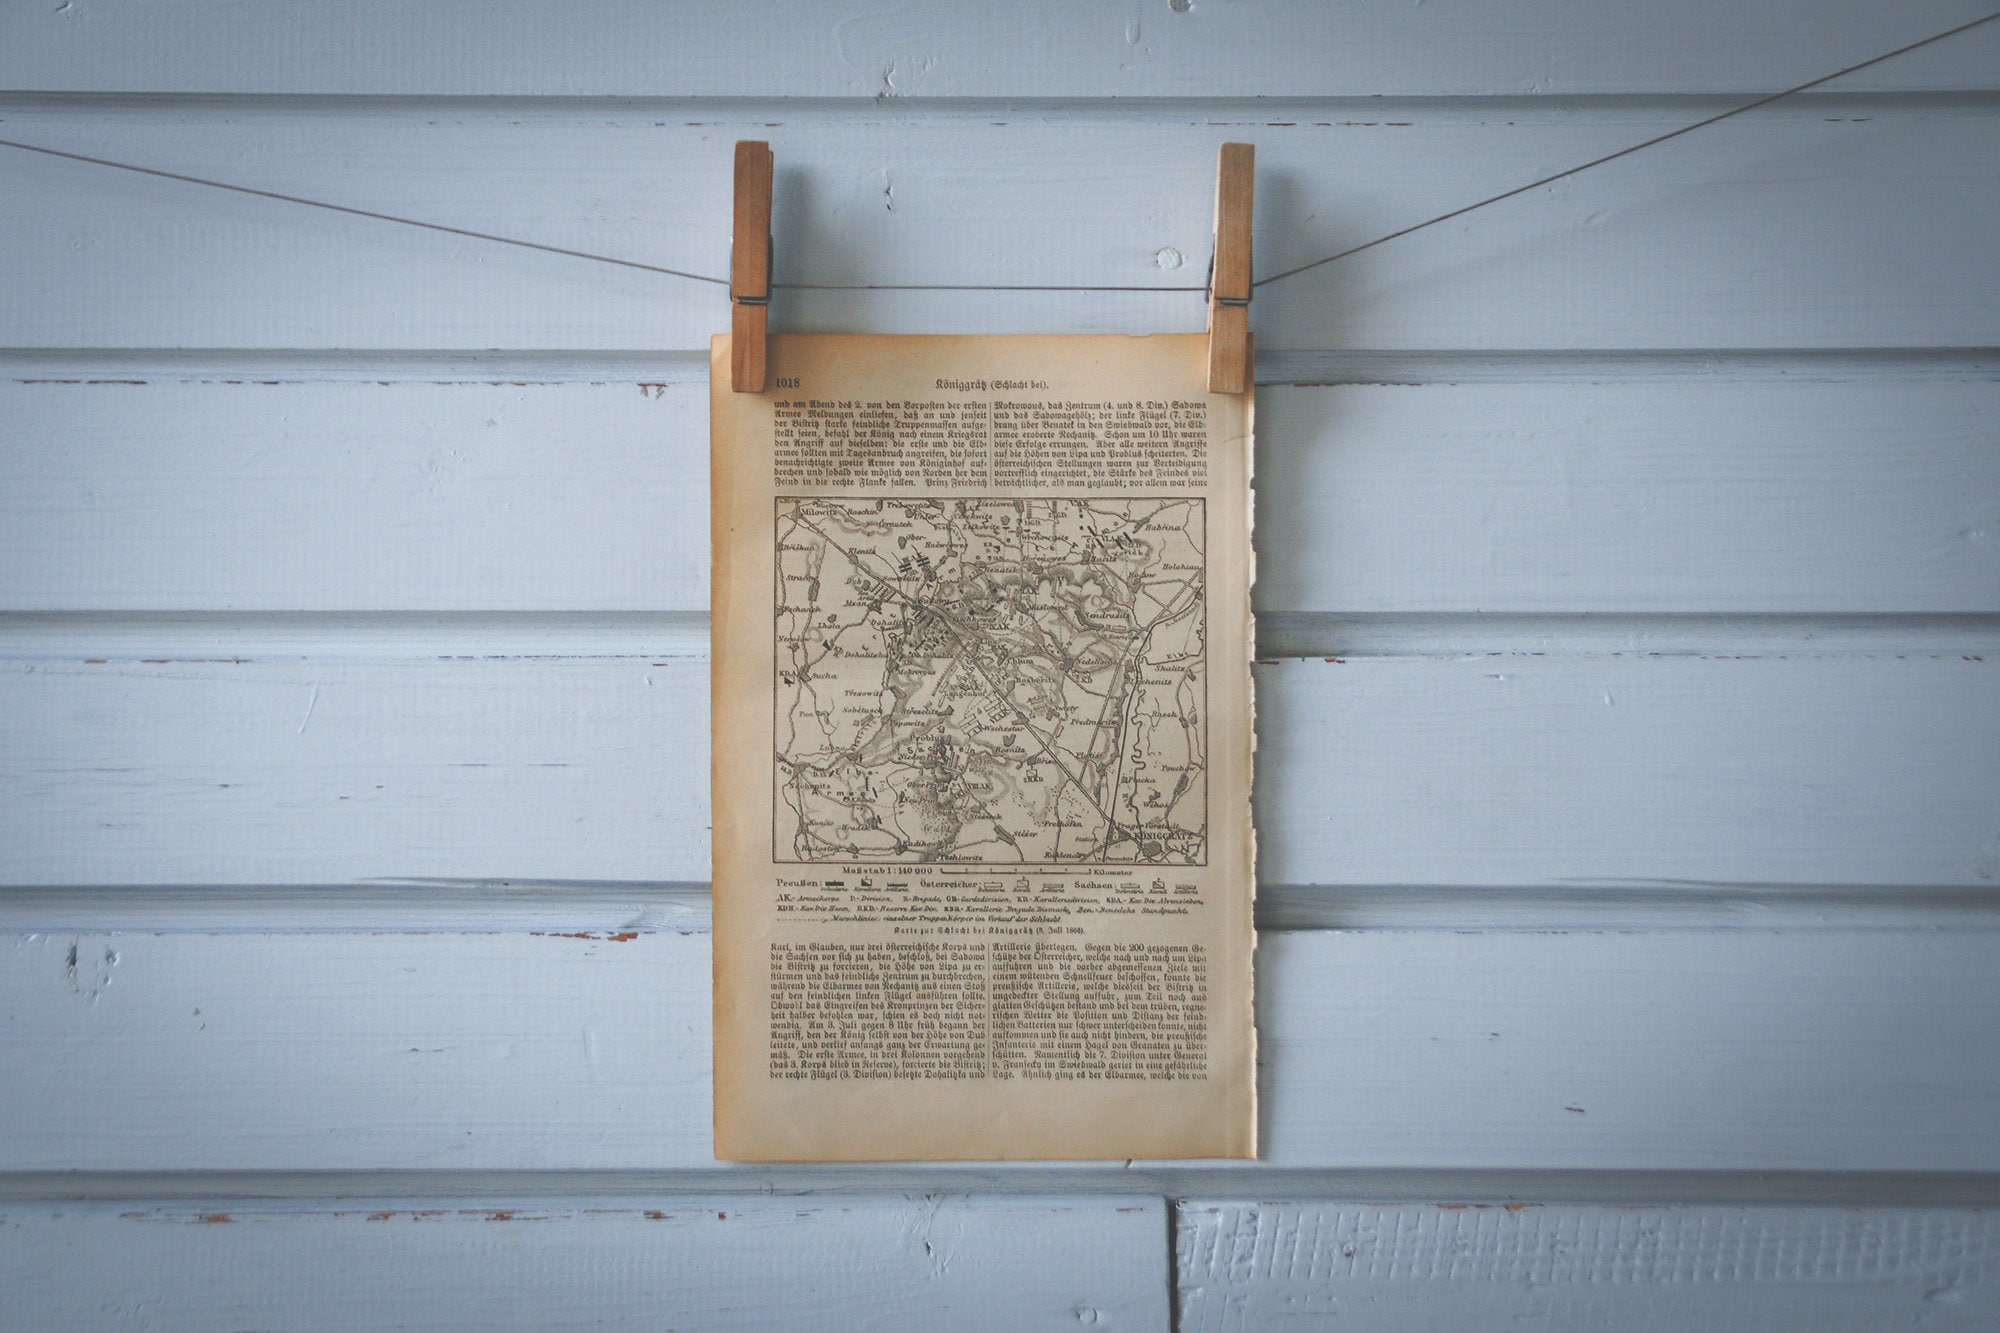 1018
Königgrätz (Schlacht bei).
und am Abend des 2. von den Vorposten der ersten
Armee Meldungen einliefen, daß an und jenseit
der Bistritz starke feindliche Truppenmassen aufge-
stellt seien, befahl der König nach einem Kriegsrat
den Angriff auf dieselben: die erste und die Elb-
armee sollten mit Tagesanbruch angreifen, die sofort
benachrichtigte zweite Armee von Königinhof auf-
brechen und sobald wie möglich von Norden her dem
Feind in die rechte Flanke fallen. Prinz Friedrich
Mokrowous, das Zentrum (4. und 8. Div.) Sadowa
und das Sadowagehölz; der linke Flügel (7. Div.)
drang über Benatek in den Swiebwald vor, die Elb-
armee eroberte Nechanitz. Schon um 10 Uhr waren
diese Erfolge errungen. Aber alle weitern Angriffe
auf die Höhen von Lipa und Problus scheiterten. Die
österreichischen Stellungen waren zur Verteidigung
vortrefflich eingerichtet, die Stärke des Feindes viel
beträchtlicher, als man geglaubt; vor allem war seine
Milowitz
Roschin
Cernutek
Habřina
Klenitz
Benatek
Horenowes
Holohlau
Rodow
Dub
Mzan
Lhota
Dohalitz
Dohalitzka
Mokrovous
Sucha
Třesowitz
Sobětusch
Popowitz
Střeselitz
Langenhof
Chlum
Rosberitz
Nedelischt
Sendrasitz
Skalitz
Lochenitz
Wschestar
Problus
Sachsen
Rosnitz
Předmeritz
Plotist
Placka
Pouchow
Lubno
Nechanitz
Kunčic
Hradek
Radostow
Stezirek
Stěžer
Techlowitz
Kuklena
Prager Vorstadt
KÖNIGGRÄTZ
Maßstab 1:140 000 Kilometer
Preußen: Infanterie Kavallerie Artillerie Österreicher: Infanterie Kavall. Artillerie Sachsen: Infanterie Kavall. Artillerie
AK.- Armeekorps, D.- Division, B.- Brigade, GD.- Gardedivision, KD.- Kavalleriedivision, KDA.- Kav. Div. Alvensleben,
KDH.- Kav. Div. Hann, RKD.- Reserve Kav. Div. KBB.- Kavallerie Brigade Bismark, Ben.- Benedeks Standpunkt.
Marschlinien einzelner Truppenkörper im Verlauf der Schlacht.
Karte zur Schlacht bei Königgrätz (3. Juli 1866).
Karl, im Glauben, nur drei österreichische Korps und
die Sachsen vor sich zu haben, beschloß, bei Sadowa
die Bistritz zu forcieren, die Höhe von Lipa zu er-
stürmen und das feindliche Zentrum zu durchbrechen,
während die Elbarmee von Nechanitz aus einen Stoß
auf den feindlichen linken Flügel ausführen sollte.
Obwohl das Eingreifen des Kronprinzen der Sicher-
heit halber befohlen war, schien es doch nicht not-
wendig. Am 3. Juli gegen 8 Uhr früh begann der
Angriff, den der König selbst von der Höhe von Dub
leitete, und verlief anfangs ganz der Erwartung ge-
mäß. Die erste Armee, in drei Kolonnen vorgehend
(das 3. Korps blieb in Reserve), forcierte die Bistritz;
der rechte Flügel (3. Division) besetzte Dohalitzka und
Artillerie überlegen. Gegen die 200 gezogenen Ge-
schütze der Österreicher, welche nach und nach um Lipa
auffuhren und die vorher abgemessenen Ziele mit
einem wütenden Schnellfeuer beschossen, konnte die
preußische Artillerie, welche diesseit der Bistritz in
ungedeckter Stellung auffuhr, zum Teil noch aus
glatten Geschützen bestand und bei dem trüben, regne-
rischen Wetter die Position und Distanz der feind-
lichen Batterien nur schwer unterscheiden konnte, nicht
aufkommen und sie auch nicht hindern, die preußische
Infanterie mit einem Hagel von Granaten zu über-
schütten. Namentlich die 7. Division unter General
v. Fransecky im Swiebwald geriet in eine gefährliche
Lage. Ähnlich ging es der Elbarmee, welche die von